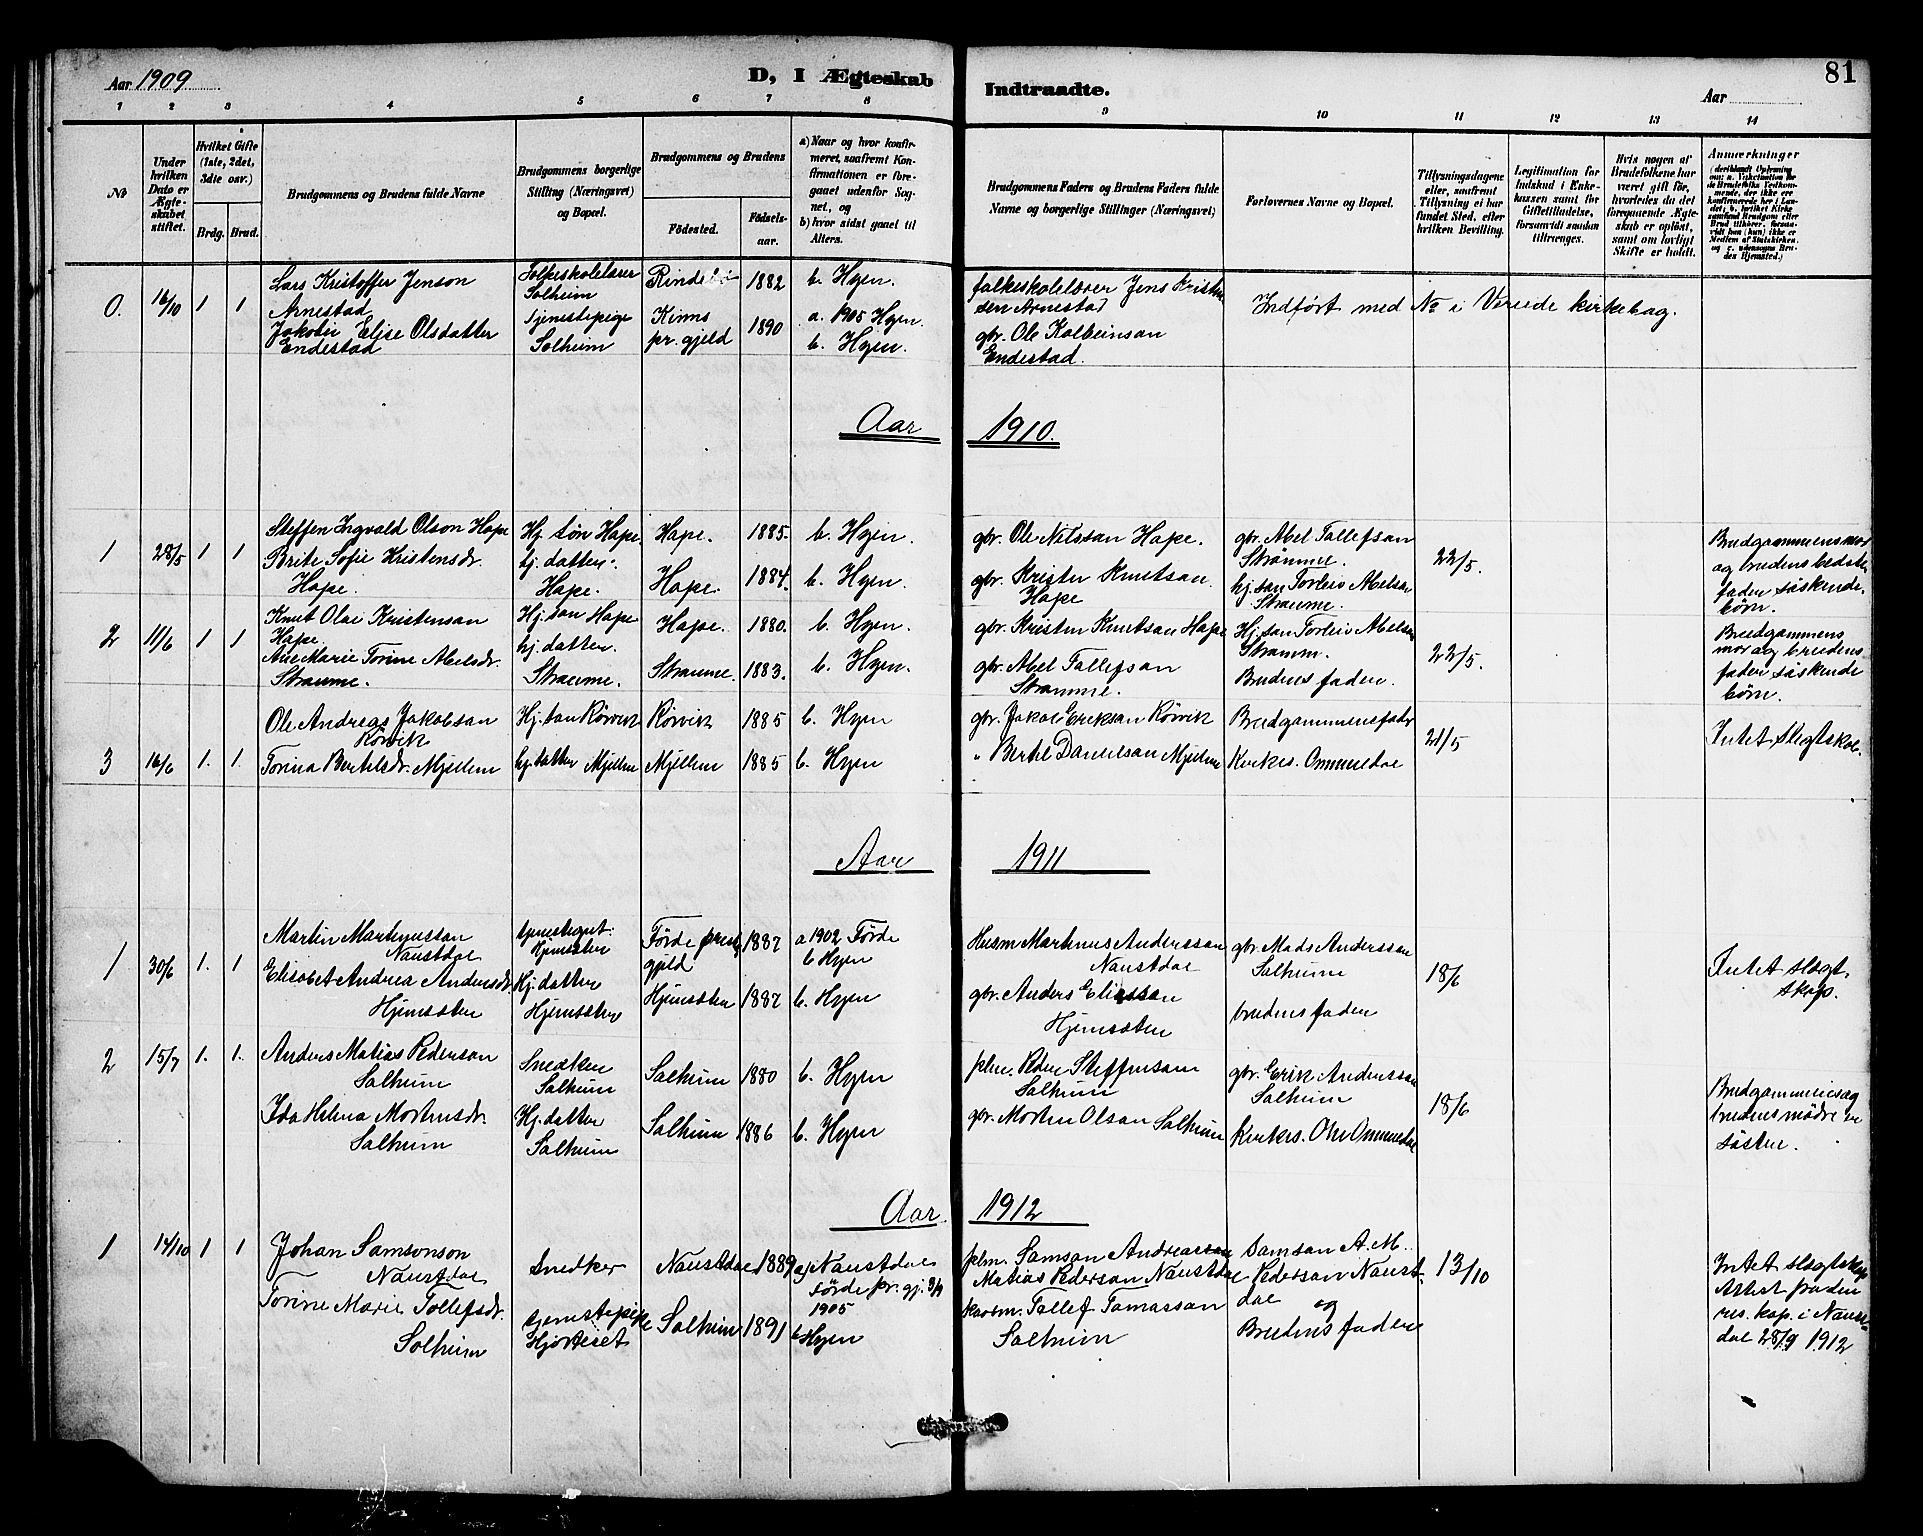 81
Aar 1909
D, I Ægteskab
Indtraadte.
Aar
1 2 3 4 5 6 7 8 9 10 11 12 13 14
№
Under hvilken Dato er Ægteskabet stiftet.
Hvilket Gifte (1ste, 2det, 3die osv.)
Brdg. Brud.
Brudgommens og Brudens fulde Navne
Brudgommens borgerlige Stilling (Næringsvei) og Bopæl.
Brudgommens og Brudens
Fødested.
Fødselsaar.
a) Naar og hvor konfirmeret, saafremt Konfirmationen er foregaaet udenfor Sognet, og
b) hvor sidst gaaet til Alters.
Brudgommens Faders og Brudens Faders fulde Navne og borgerlige Stillinger (Næringsvei)
Forlovernes Navne og Bopæl.
Tillysningsdagene eller, saafremt Tillysning ei har fundet Sted, efter hvilken Bevilling.
Legitimation for Indskud i Enkekassen samt for Giftetilladelse, forsaavidt saadan tiltrænges.
Hvis nogen af Brudefolkene har været gift før, hvorledes da det foregaaende Ægteskab er opløst, samt om lovligt Skifte er holdt.
Anmærkninger
0. 16/10 1 1
Lars Kristoffer Jenson
Arnestad
Jakobie Elise Olsdatter
Endestad
Folkeskolelærer
Solheim
Tjenestepige
Solheim
1882
Kinns
pr. gjeld
1890
b. Hyen.
a. 1905 Hyen.
b. Hyen.
folkeskolelærer Jens Kristen
sen Arnestad
gbr. Ole Kolbeinson
Endestad.
Indført med № i Vereide kirkebog.
Aar 1910.
1 28/5 1 1
Steffen Ingvald Olson Hope
Brite Sofie Kristensdr.
Hope.
Hj. søn Hope.
hj. datter.
Hope.
Hope. 1885.
Hope. 1884.
b. Hyen.
b. Hyen.
gbr. Ole Nilsson Hope.
gbr. Kristen Knutson
Hope
gbr. Abel Tollefson
Strømme.
hj. søn Torleiv Abelson
Straume.
22/5.
Brudgommens mor
og brudens bedste
fader søskende-
børn.
2 11/6 1 1
Knut Olai Kristenson
Hope.
Ane Marie Torine Abelsdr.
Straume.
Hj. søn Hope
hj. datter.
Straume.
Hope. 1880.
Straume. 1883.
b. Hyen.
b. Hyen.
gbr. Kristen Knutson Hope
gbr. Abel Tollefson
Strømme.
Hj. søn Torleiv Abelson
Strømm.
Brudens fader.
22/5.
Brudgommens
mor og brudens
fader søskende
børn.
3 16/6 1. 1.
Ole Andreas Jakobson
Rørvik
Torina Bertelsdr. Mjellem
Hj. søn Rørvik
hj. datter Mjellem
Rørvik 1885
Mjellem 1885
b. Hyen
b. Hyen
gbr. Jakob Erikson Rørvik
" Bertel Danielson Mjellem
Brudgommens fader
Kirkes. Ommedal
21/5
Intet slegtskab.
Aar 1911
1 30/6 1. 1
Martin Martinusson
Naustdal
Elisabet Andrea Andersdr.
Hjemseten
tjenestegut
Hjemseten
Hj. datter
Hjemseten
Førde prest
gjeld 1887
Hjemseten 1887
a 1902 Førde
b Hyen
b. Hyen
Husm Martinus Andersson
Naustdal
gbr. Anders Eliasson
Hjemseten
gbr. Mads Andersson
Solheim
brudens fader
18/6
Intet slægt
skap.
2 15/7 1. 1.
Anders Matias Pederson
Solheim
Ida Helena Mortensdr.
Solheim
Snedker
Solheim
Hj. datter
Solheim
Solheim 1880
Solheim 1886
b. Hyen
b. Hyen
plm. Peder Steffenson
Solheim
gbr. Morten Olson Solheim
gbr. Erik Andersson
Solheim
Kirkes. Ole Ommedal
18/6
Brudgommens og
brudens mødre er
søstre.
Aar 1912
1 14/10 1 1
Johan Samsonson
Naustdal
Torine Marie Tollefsdr.
Solheim
Snedker
tjenestepike
Hjorteset
Naustdal 1889
Solheim 1891
a) Naustdal
Førde pr. gj. 3/9
1905
b Hyen
plm. Samson Andreasson
Matias Pederson Naustdal
Tollef Tomasson
Solheim
Samson A. M.
Pederson Naust-
dal
og
Brudens fader
13/10
Intet slægtskap
Attest fra den
res. kap. i Naust-
dal 28/9 1912